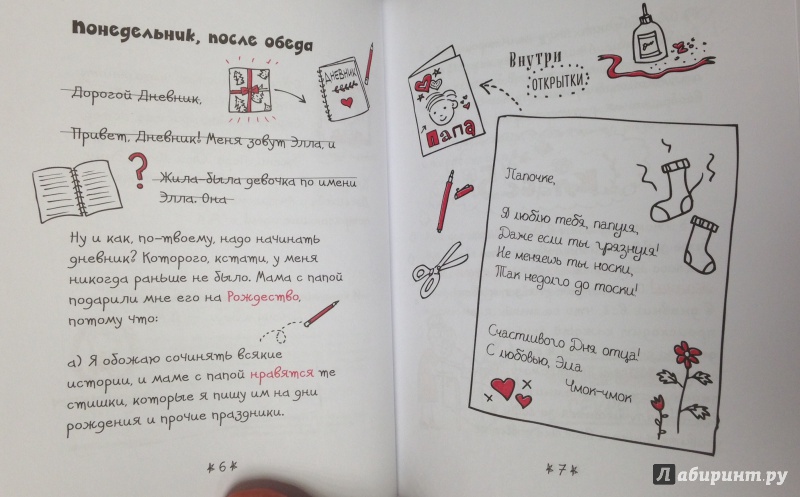 Понедельник, после обеда
Дорогой Дневник,
ДНЕВНИК
Привет, Дневник! Меня зовут Элла, и
?
Жила-была девочка по имени
Элла. Она
Ну и как, по-твоему, надо начинать
дневник? Которого, кстати, у меня
никогда раньше не было. Мама с папой
подарили мне его на Рождество,
потому что:
а) Я обожаю сочинять всякие
истории, и маме с папой нравятся те
стишки, которые я пишу им на дни
рождения и прочие праздники.
*6*
Папа
Внутри
ОТКРЫТКИ
Папочке,
Я люблю тебя, папуля,
Даже если ты грязнуля!
Не меняешь ты носки,
Так недолго до тоски!
Счастливого Дня отца!
С любовью, Элла
Чмок-чмок
*7*
Лабиринт.ру